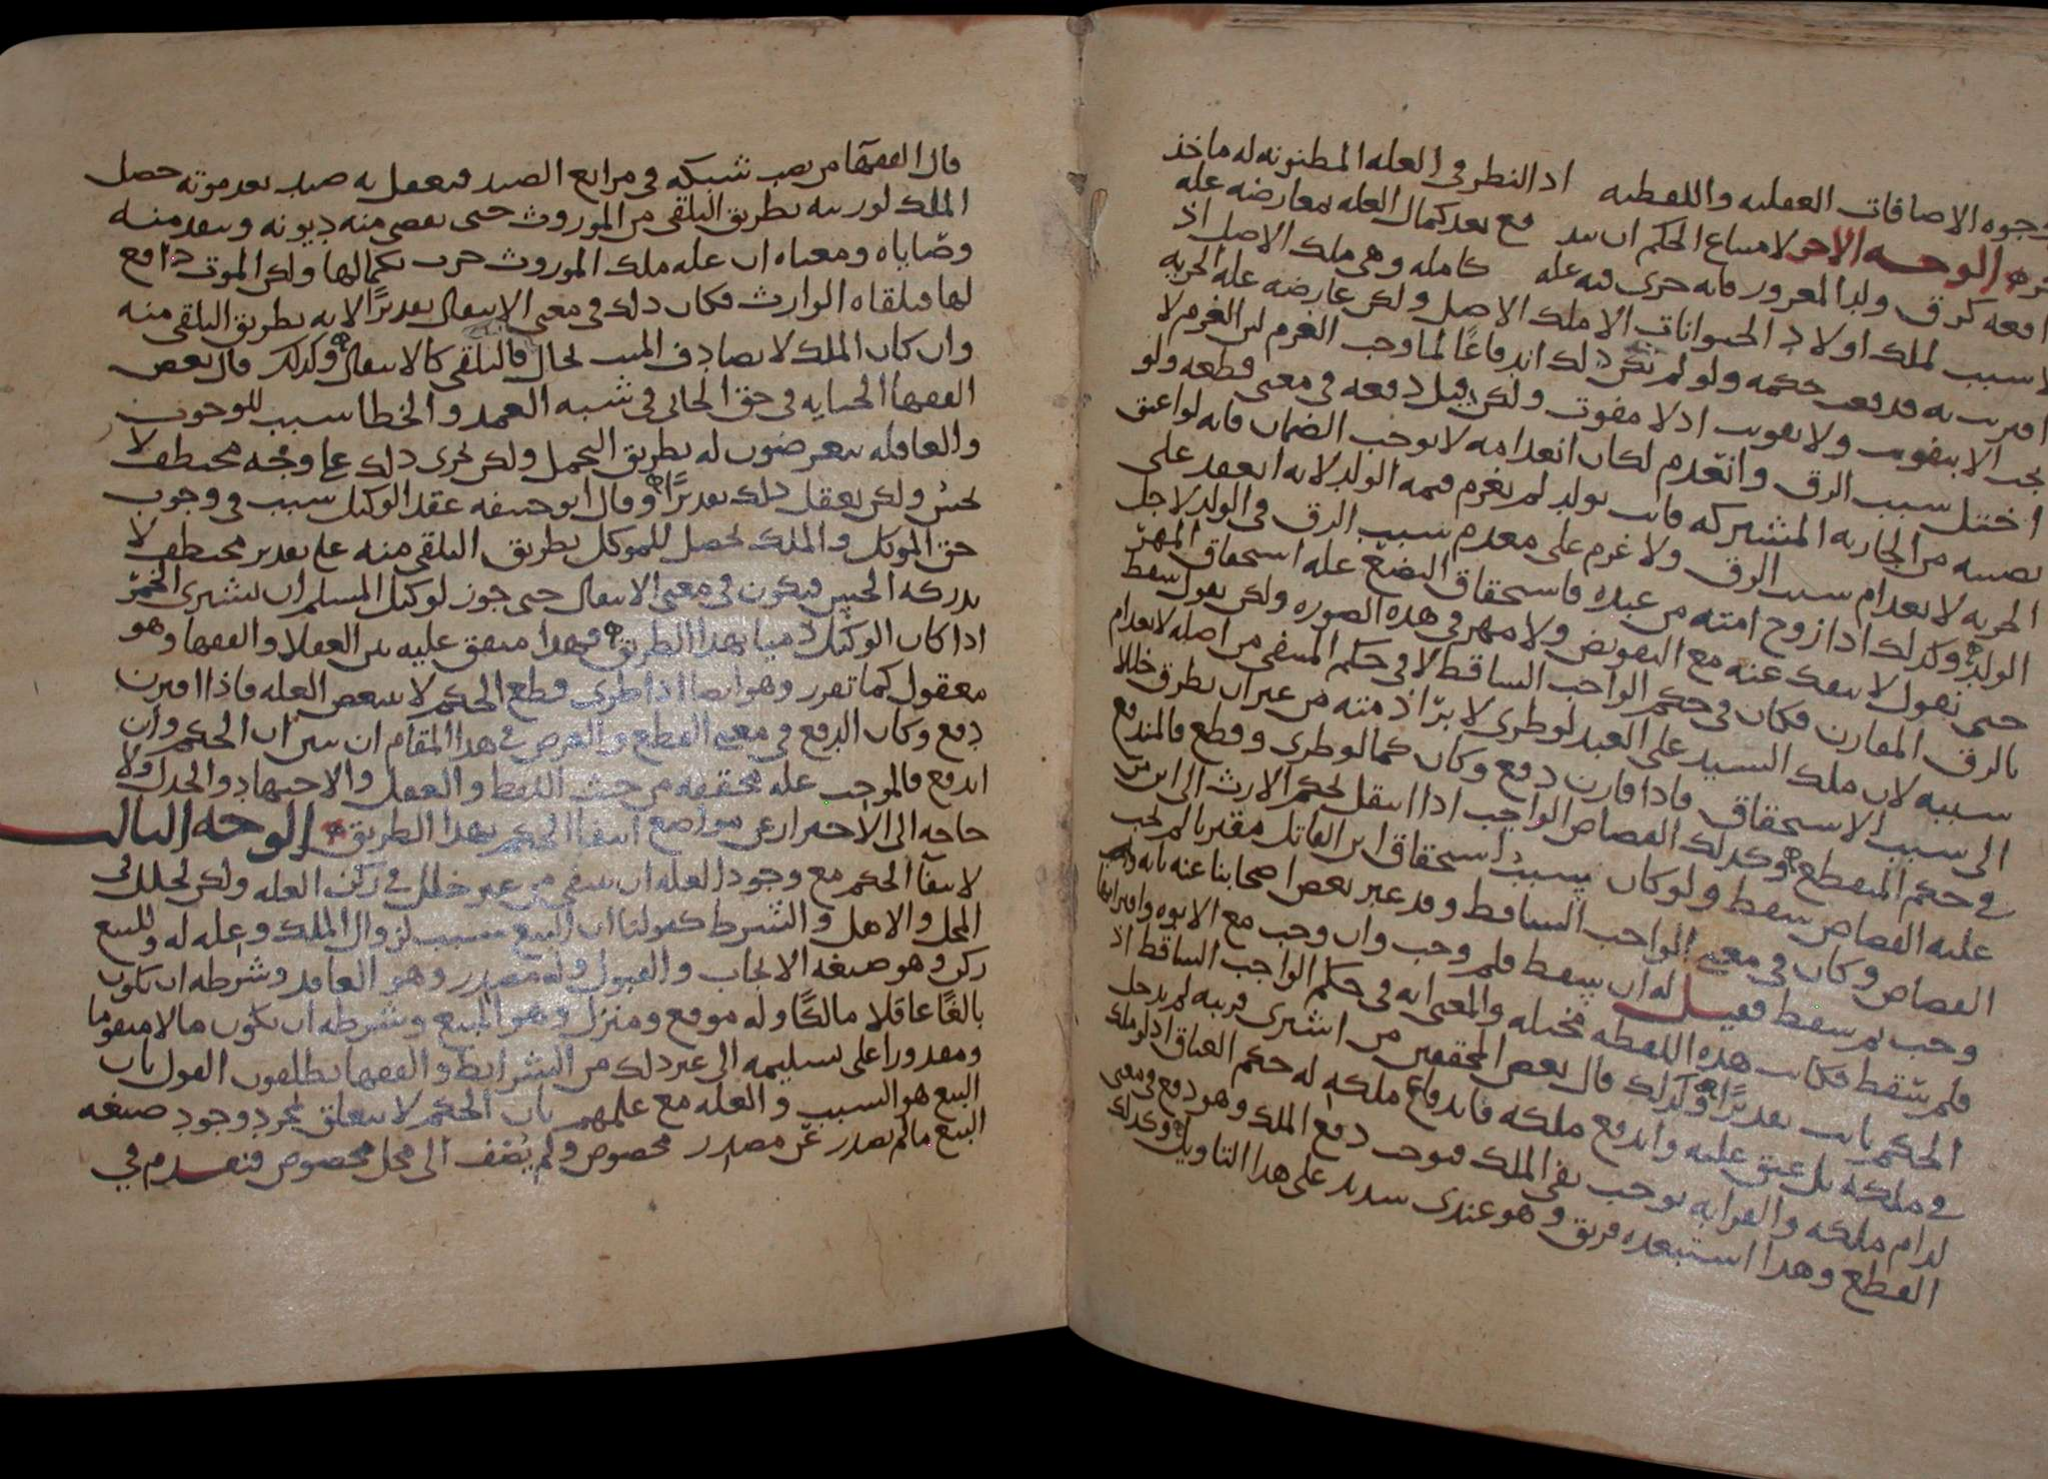 وجوه الاضافات العقليه واللفظيه اذ النظر في العله المظنونه له ماخذ
الوجه الاخر لامتناع الحكم ان يندفع بعد كمال العله بمعارضه عله
دافعه كرق ولد المغرور فانه جرى فيه عله كامله وهي ملك الاصل اذ
لا سبب لملك اولاد الحيوانات الا ملك الاصل ولكن عارضه عله الحريه
اقترنت به فدفعت حكمه ولو لم يكن ذلك اندفاعا لما وجب الغرم لان الغرم لا
يجب الا بتفويت ولا تفويت اذ لا مفوت ولكن قيل دفعه في معنى قطعه ولو
اختل سبب الرق وانعدم لكان انعدامه لا يوجب الضمان فانه لو اعتق
نصيبه من الجاريه المشتركه فاتت بولد لم يغرم قيمه الولد لانه انعقد على
الحريه لانعدام سبب الرق ولا غرم على معدم سبب الرق في الولد لاجل
الولد وكذلك اذا زوج امته من عبده فاستحقاق البضع عله استحقاق المهر
حتى نقول لا ينفك عنه مع التفويض ولا مهر في هذه الصوره ولكن نقول سقط
بالرق المقارن فكان في حكم الواجب الساقط لا في حكم المنتفي من اصله لانعدام
سببه لان ملك السيد على العبد لو طرى لابرا ذمته من غير ان يطرق خللا
الى سبب الاستحقاق فاذا قارن دفع وكان كما لو طرى وقطع فالمندفع
في حكم المنقطع وكذلك القصاص الواجب اذا انتقل بحكم الارث الى ابن من
عليه القصاص سقط ولو كان سبب استحقاق ابن القاتل مقترنا لم يجب
القصاص وكان في معنى الواجب الساقط وقد عبر بعض اصحابنا عنه بانه
وجب ثم سقط فقيل له ان سقط فلم وجب وان وجب مع الابوه واقترانها
فلم سقط فكانت هذه اللفظه مختله والمعنى انه في حكم الواجب الساقط اذ
الحكم ثابت تقديرا وكذلك قال بعض المحققين من اشترى قريبه لم يدخل
في ملكه بل عتق عليه واندفع ملكه فاندفاع ملكه له حكم العتاق اذ لو ملك
لدام ملكه والقرابه توجب نفي الملك فتوجب دفع الملك وهو دفع في معنى
القطع وهذا استبعده فريق وهو عندي سديد على هذا التاويل وكذلك
قال الفقها من نصب شبكه في مراتع الصيد فتعقل به صيد بعد موته حصل
الملك لورثته بطريق التلقي من الموروث حتى يقضى منه ديونه وينفذ منه
وصاياه ومعناه ان عله ملك الموروث جرت بكمالها ولكن الموت دافع
لها فتلقاه الوارث فكان ذلك في معنى الانتقال تقديرا لانه بطريق التلقي منه
وان كان الملك لا يصادف الميت بحال فالتلقي كالانتقال وكذلك قال بعض
الفقها الجنايه في حق الجاني في شبه العمد والخطا سبب للوجوب
والعاقله يتعرضون له بطريق التحمل ولكن يجرى ذلك على وجه مختطف لا
يحس ولكن يعقل ذلك تقديرا وقال ابو حنيفه عقد الوكيل سبب في وجوب
حق الموكل والملك يحصل للموكل بطريق التلقي منه على تقدير مختطف لا
يدركه الحس فيكون في معنى الانتقال حتى جوز لوكيل المسلم ان يشترى الخمر
اذا كان الوكيل ذميا بهذا الطريق فهذا متفق عليه بين العقلا والفقها وهو
معقول كما تقرر وهو ايضا اذا طرى قطع الحكم لا ينقض العله فاذا اقترن
دفع وكان الدفع في معنى القطع والغرض في هذا المقام ان نبين ان الحكم وان
اندفع فالموجب عله محققه من حيث اللفظ والعقل والاجتهاد والجدل ولا
حاجه الى الاحتراز عن مواضع انتفا الحكم بهذا الطريق الوجه الثالث
لانتفا الحكم مع وجود العله ان ينتفي من غير خلل في ركن العله ولكن لخلل في
المحل والاهل والشرط كقولنا ان البيع سبب لزوال الملك وعله له وللبيع
ركن وهو صيغه الايجاب والقبول وله مصدر وهو العاقد وشرطه ان يكون
بالغا عاقلا مالكا وله موقع ومنزل وهو المبيع وشرطه ان يكون مالا متقوما
ومقدورا على تسليمه الى غير ذلك من الشرايط والفقها يطلقون القول بان
البيع هو السبب والعله مع علمهم بان الحكم لا يتعلق بمجرد وجود صيغه
البيع ما لم يصدر عن مصدر مخصوص ولم يضف الى محل مخصوص فتقدم في